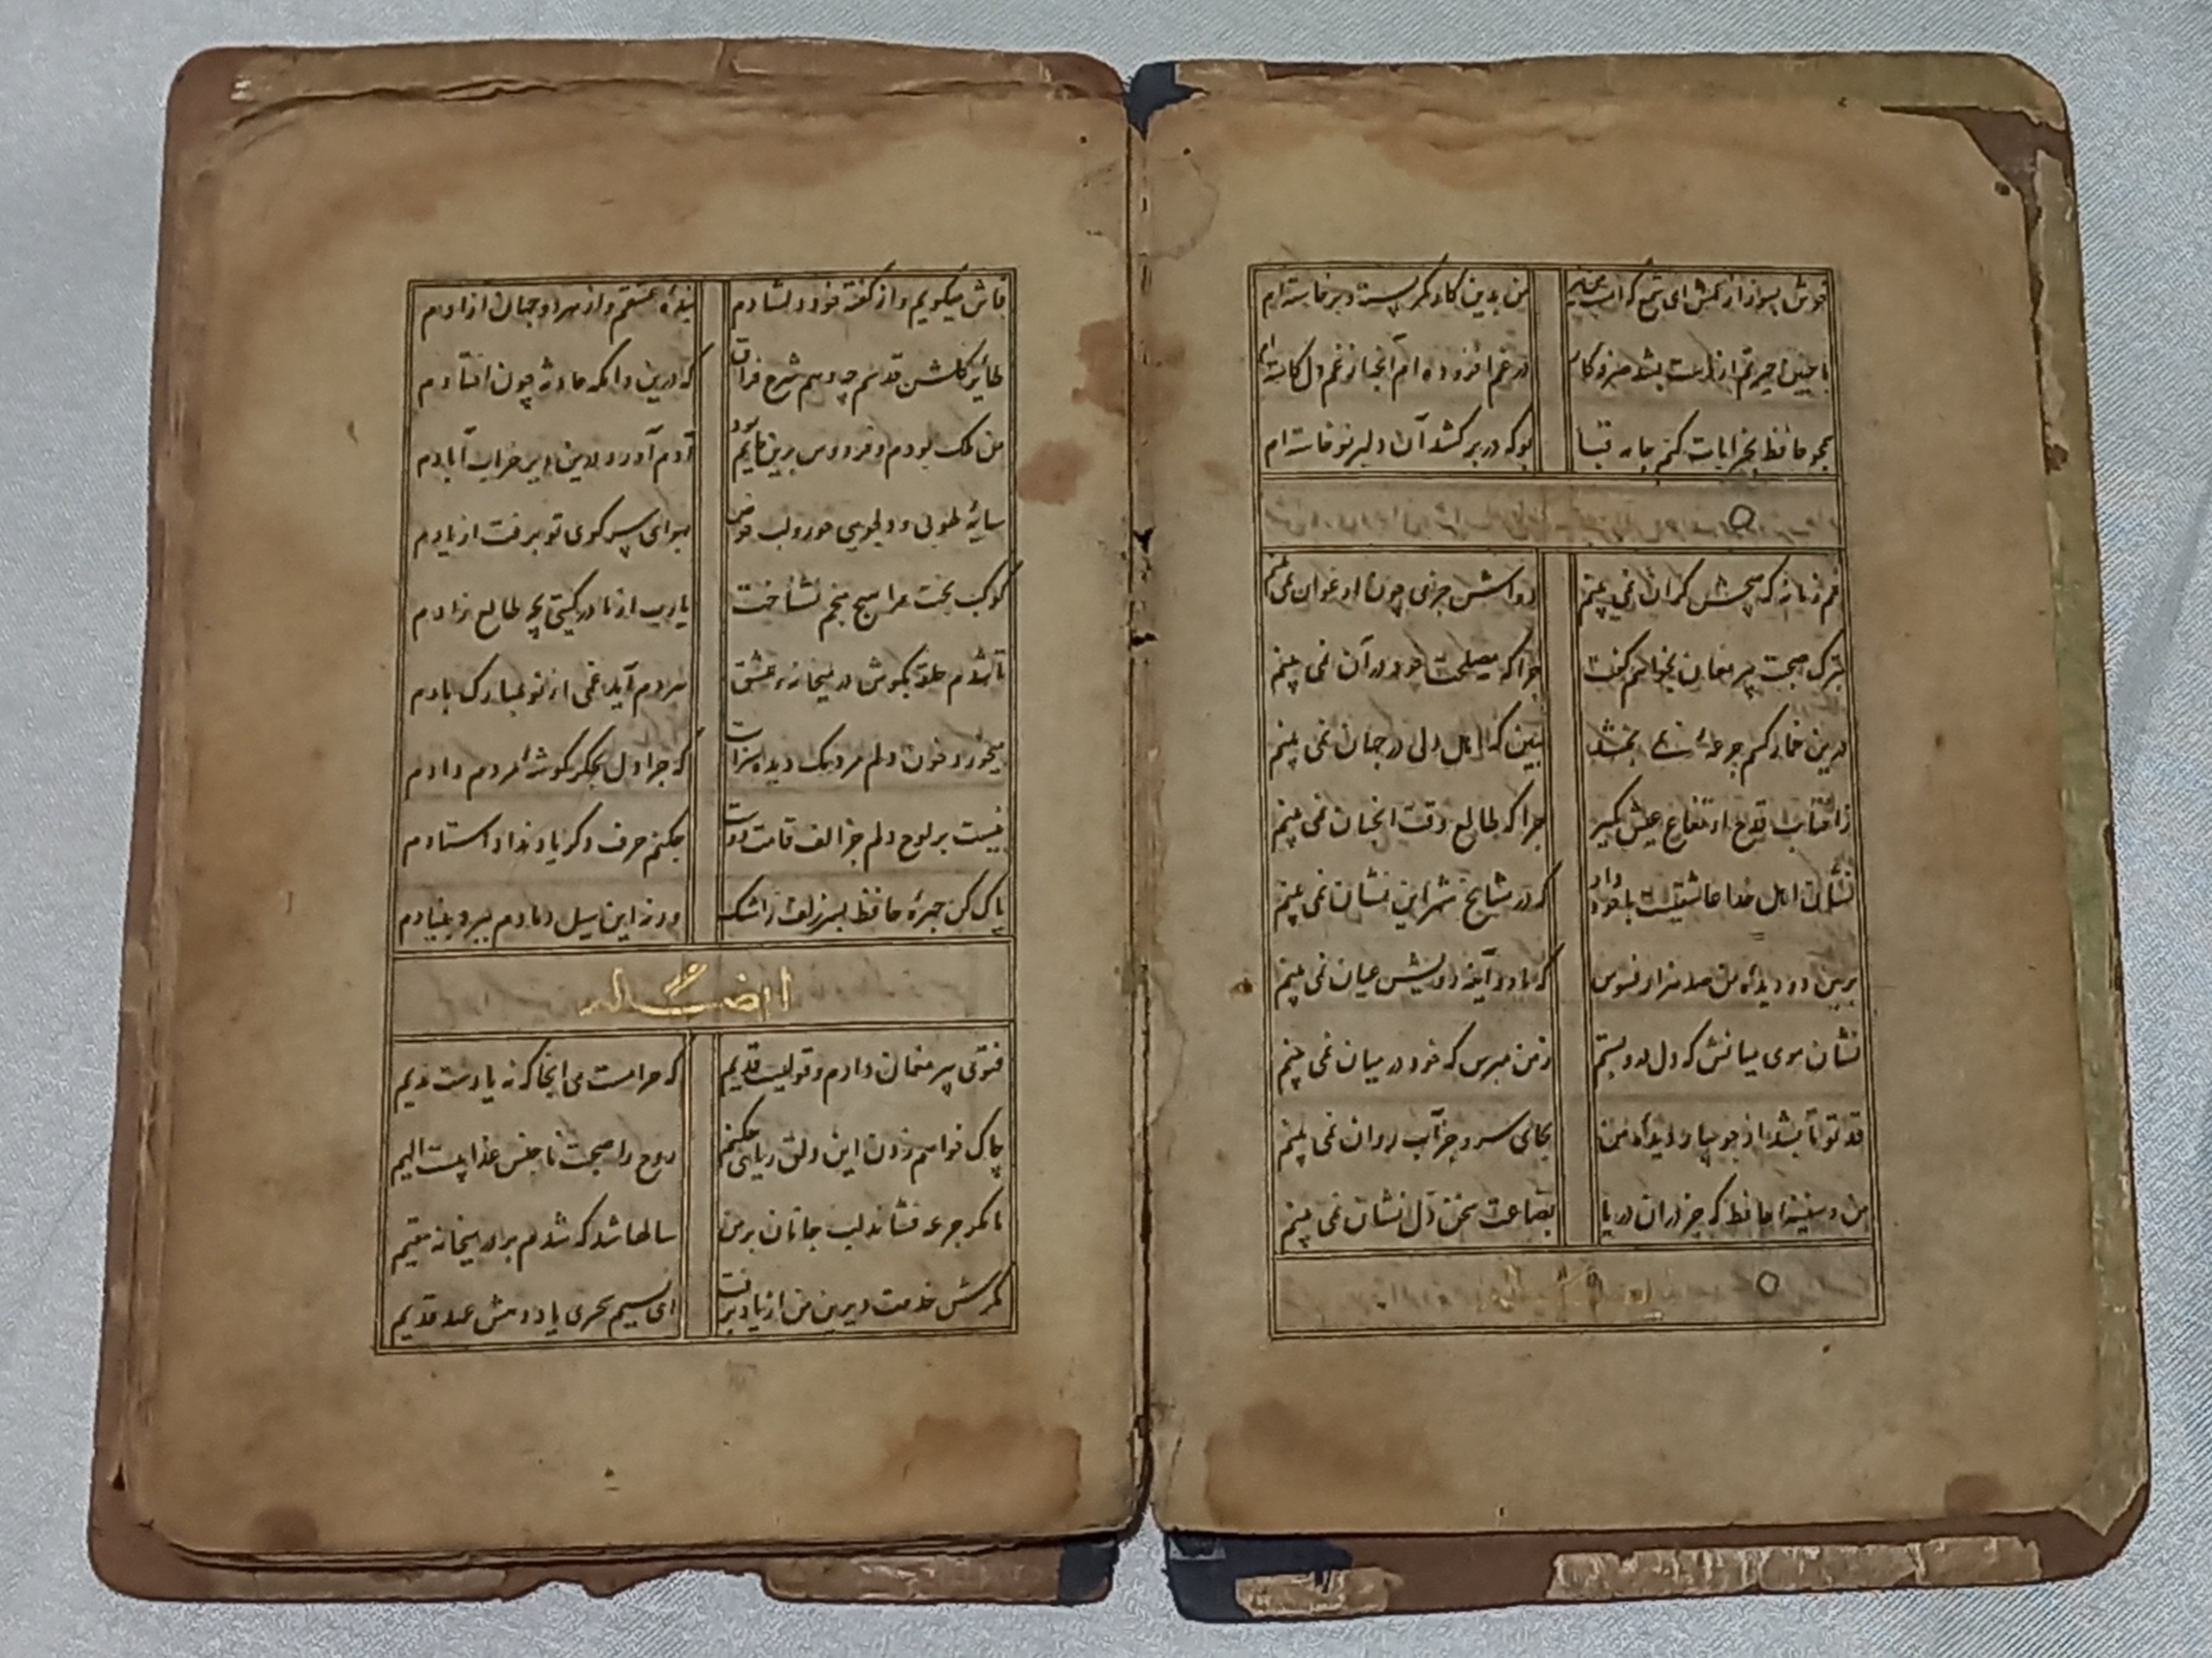 خوش بسوز از غمش ای شمع که امشب من نیز
من بدین کار کمر بسته و برخاسته ام
با چنین حیرتم از دست بشد صرفه کار
در غم افزوده ام آنچه از غم دل کاسته ام
همچو حافظ بخرابات کنم جامه قبا
بو که در بر کشد آن دلبر نوخاسته ام
غم زمانه که هیچش کران نمی بینم
دواش جز می چون ارغوان نمی بینم
بترک صحبت پیر مغان نخواهم گفت
چرا که مصلحت خود در آن نمی بینم
درین خمار کسم جرعه نمی بخشد
ببین که اهل دلی در جهان نمی بینم
ز آفتاب قدح ارتفاع عیش بگیر
چرا که طالع وقت آنچنان نمی بینم
نشان اهل خدا عاشقیست با خود دار
که در مشایخ شهر این نشان نمی بینم
برین دو دیده من صد هزار افسوس
که با دو آینه رویش عیان نمی بینم
نشان موی میانش که دل درو بستم
ز من مپرس که خود در میان نمی بینم
قد تو تا بشد از جویبار دیده من
بجای سرو جز آب روان نمی بینم
من و سفینه حافظ که جز در آن دریا
بضاعت سخن دل نشان نمی بینم
فاش میگویم و از گفته خود دلشادم
بنده عشقم و از هر دو جهان آزادم
طائر گلشن قدسم چه دهم شرح فراق
که درین دامگه حادثه چون افتادم
من ملک بودم و فردوس برین جایم بود
آدم آورد درین دیر خراب آبادم
سایه طوبی و دلجویی حور و لب حوض
بهوای سر کوی تو برفت از یادم
کوکب بخت مرا هیچ منجم نشناخت
یارب از مادر گیتی بچه طالع زادم
تا شدم حلقه بگوش در میخانه عشق
هردم آید غمی از نو بمبارک بادم
میخورد خون دلم مردمک دیده سزاست
که چرا دل بجگر گوشه مردم دادم
نیست بر لوح دلم جز الف قامت دوست
چکنم حرف دگر یاد نداد استادم
پاک کن چهره حافظ بسر زلف ز اشک
ورنه این سیل دمادم ببرد بنیادم
ایضا له
فتوی پیر مغان دارم و قولیست قدیم
که حرامست می آنجا که نه یارست ندیم
چاک خواهم زدن این دلق ریایی چکنم
روح را صحبت ناجنس عذابیست الیم
تا مگر جرعه فشاند لب جانان بر من
سالها شد که شدم بر در میخانه مقیم
مگرش خدمت دیرین من از یاد برفت
ای نسیم سحری یاد دهش عهد قدیم